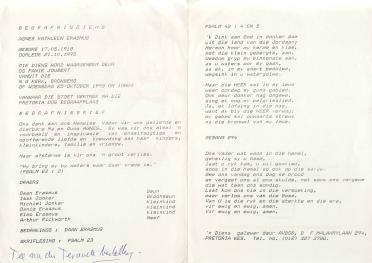 BEGRAFNISDIENS
AGNES KATHLEEN ERASMUS
GEBORE 17.05.1918
OORLEDE 21.10.1993
DIE DIENS WORD WAARGENEEM DEUR
DS FANIE JOUBERT
VANUIT DIE
N G KERK,
OP WOENSDAG 25 OKTOBER 1993 OM
VANDAAR DIE STOET VERTREK NA DIE
PRETORIA DOS BEGRAAFPLAAS
BEGRAFNISBRIEF
Ons dank ons Hemelse Vader vir ons geliefde en
dierbare Ma en Ouma AGNES. Sy was vir ons almal 'n
voorbeeld en inspirasie van
opofferende liefde en toewyding aan haar kinders,
kleinkinders, familie en vriende.
Haar afsterwe is vir ons 'n groot verlies.
"Hy bring my by waters waar daar vrede is."
(PSALM 23 : 2)
DRAERS
Daan Erasmus Seun
Isak Jonker
Michiel Jonker Kleinkind
Danie Erasmus Kleinkind
Eloo Erasmus Kleinkind
Arthur Neef
BEDANKINGS : DAAN ERASMUS
SKRIFLESING : PSALM 23
Tee na die
PSALM 42 : 4 EN 5
'k Dink aan God in donker dae
uit die land van die Jordaan;
Hermon hoor my terme en klae,
met die klein gebergte, aan.
Weedom gryp my binneste aan,
as u waters oor my gaan,
as al, in my onrus bedolwe,
wegsink in u watergolwe.
Maar die HEER sal in my leed
weer oordag sy guns gebied;
Ook deur donker nag ongewe,
sing ek nog my pelgrimslied.
Ja, as lofsang in die nag,
want ek bly die HEER verwag;
my gebed sal opwaarts strewe
na die bronwel van my lewe.
GESANG 294
Onse Vader wat woon in die hemel,
geheilig sy u Naam,
laat u ryk kom, u wil geskied,
soos in die hemel so ook op die aarde.
Gee ons vandag ons dag se brood
en vergeef ons al ons skulde, net soos ons vergewe
die wat teen ons skuldig.
Laat kom ons nie in die versoeking,
maar verlos ons van die Bose.
Van U is die ryk en die sterkte en die eer,
vir ewig en ewig, amen.
Vir ewig en ewig, amen.
'n Diens gelewer deur AVBOB, D F MALANRYLAAN 294,
PRETORIA WES. Tel. no. (012)